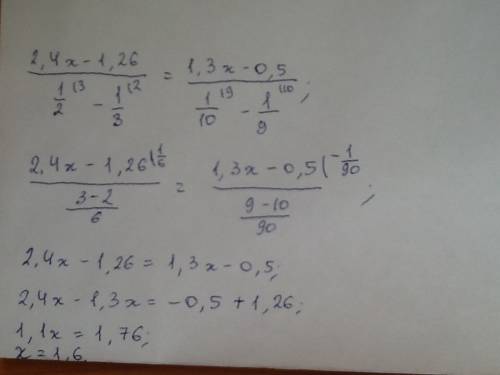 (2,4x - 1,26) / (1/2 ⁽³ - 1/3 ⁽²) = (1,3x - 0,5) / (1/10 ⁽⁹ - 1/9 ⁽¹⁰);
(2,4x - 1,26 ⁽¹/⁶) / ((3-2)/6) = (1,3x - 0,5 (-1/90) / ((9-10)/90);
2,4x - 1,26 = 1,3x - 0,5;
2,4x - 1,3x = -0,5 + 1,26;
1,1x = 1,76;
x = 1,6.